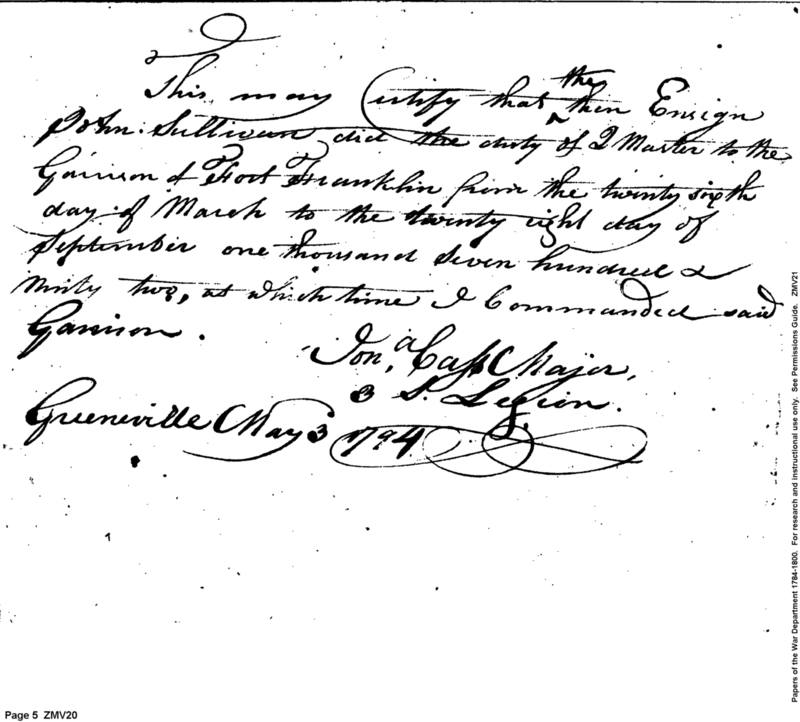 the
This may Certify that ^ then Ensign
John Sullivan did the duty of Q Master to the
Garrison of Fort Franklin from the twenty sixth
day of March to the twenty eight day of
September one thousand seven hundred &
ninty two, at which time I Commanded said
Garrison.
Jona. Cass Major,
3 S. Legion.
Greeneville May 3 1794
1
Page 5 ZMV20
Papers of the War Department 1784-1800. For research and instructional use only. See Permissions Guide. ZMV21